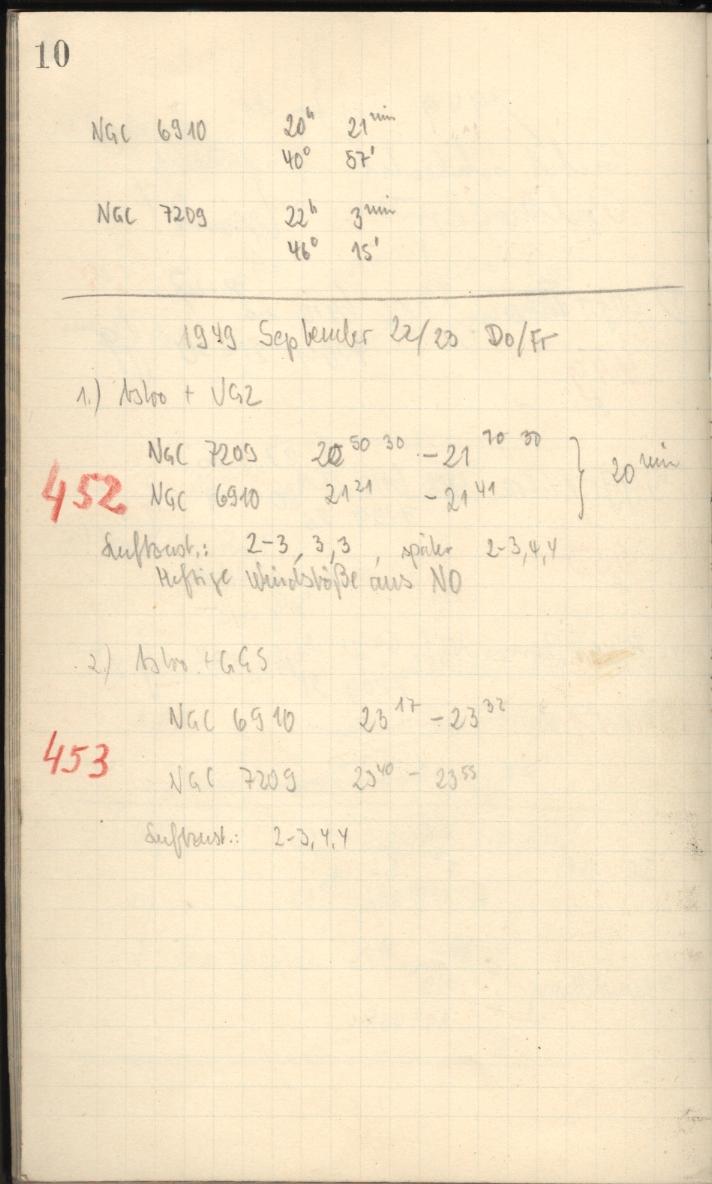 10
NGC 6910 20h 21min
40° 57'
NGC 7209 22h 3min
46° 15'
1949 September 22/23 Do/Fr
1.) Astro + VG2
NGC 7209 20 50 30 - 21 10 30 } 20 min
452 NGC 6910 21 21 - 21 41
Luftzust.: 2-3, 3, 3, später 2-3, 4, 4
Heftige Windstöße aus NO
2.) Astro + GG5
NGC 6910 23 17 - 23 32
453
NGC 7209 23 40 - 23 55
Luftzust.: 2-3, 4, 4